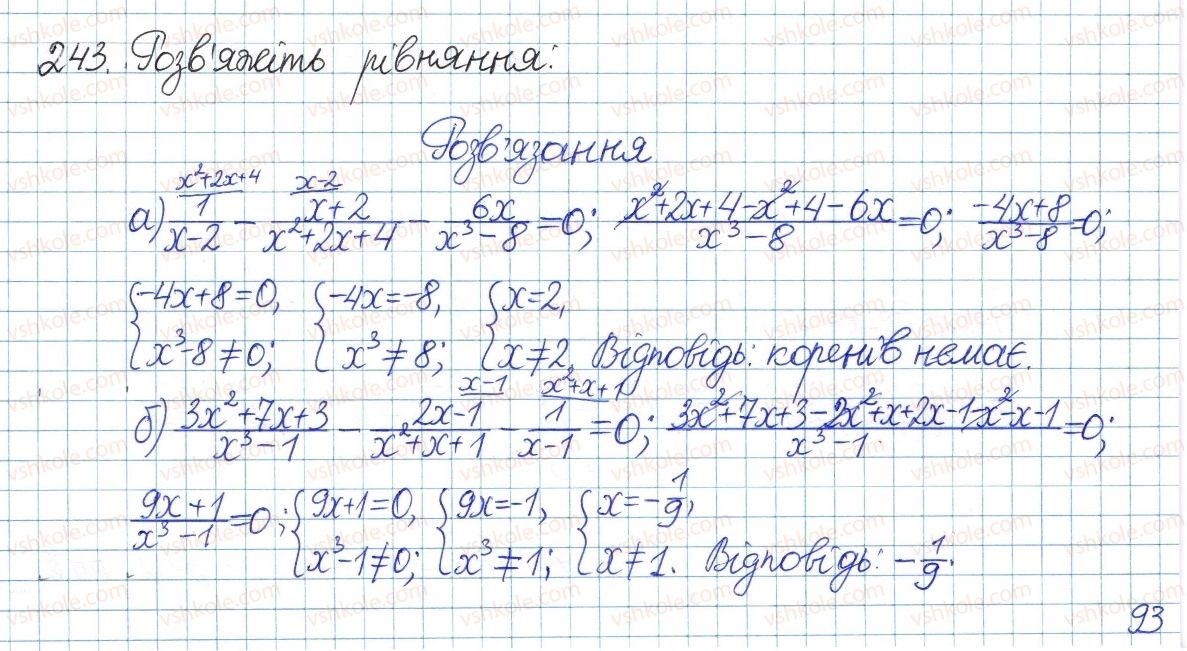 243. Розв'яжіть рівняння:
Розв'язання
а) \frac{1}{x-2}^{x²+2x+4} - \frac{x+2}{x²+2x+4}^{x-2} - \frac{6x}{x³-8} = 0; \frac{x²+2x+4-x²+4-6x}{x³-8} = 0; \frac{-4x+8}{x³-8} = 0;
{-4x+8=0, x³-8≠0; {-4x=-8, x³≠8; {x=2, x≠2, Відповідь: коренів немає.
б) \frac{3x²+7x+3}{x³-1} - \frac{2x-1}{x²+x+1}^{x-1} - \frac{1}{x-1}^{x²+x+1} = 0; \frac{3x²+7x+3-2x²+x+2x-1-x²-x-1}{x³-1} = 0;
\frac{9x+1}{x³-1} = 0; {9x+1=0, x³-1≠0; {9x=-1, x³≠1; {x=-\frac{1}{9}, x≠1. Відповідь: -\frac{1}{9}.
93
vshkole.com